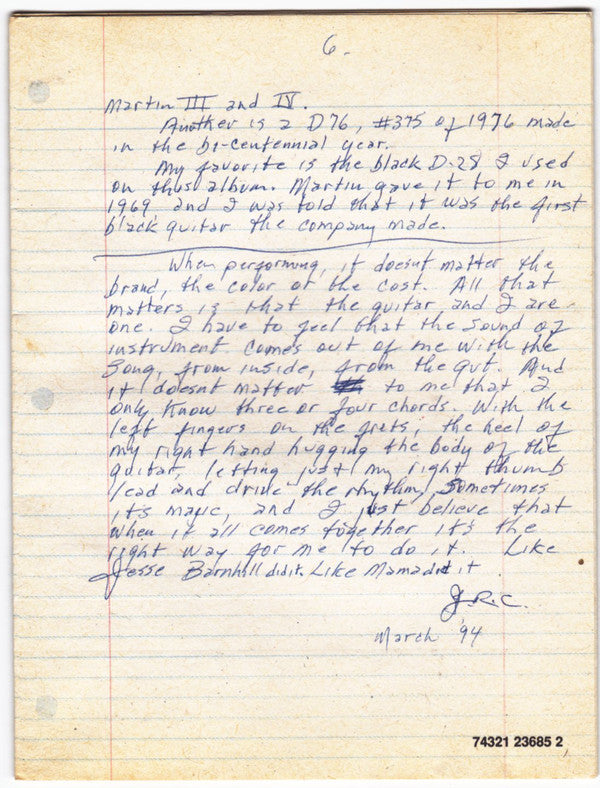 6.
Martin III and IV.
Another is a D76, #375 of 1976 made
in the bi-centennial year.
My favorite is the black D-28 I used
on this album. Martin gave it to me in
1969, and I was told that it was the first
black guitar the company made.
When performing, it doesnt matter the
brand, the color or the cost. All that
matters is that the guitar and I are
one. I have to feel that the sound of
instrument comes out of me with the
song, from inside, from the gut. And
it doesnt matter to me that I
only know three or four chords. With the
left fingers on the frets; the heel of
my right hand hugging the body of the
guitar, letting just my right thumb
lead and drive the rhythm, Sometimes
it's magic, and I just believe that
when it all comes together it's the
right way for me to do it. Like
Jesse Barnhill did it. Like Mama did it
J.R.C.
March '94
74321 23685 2